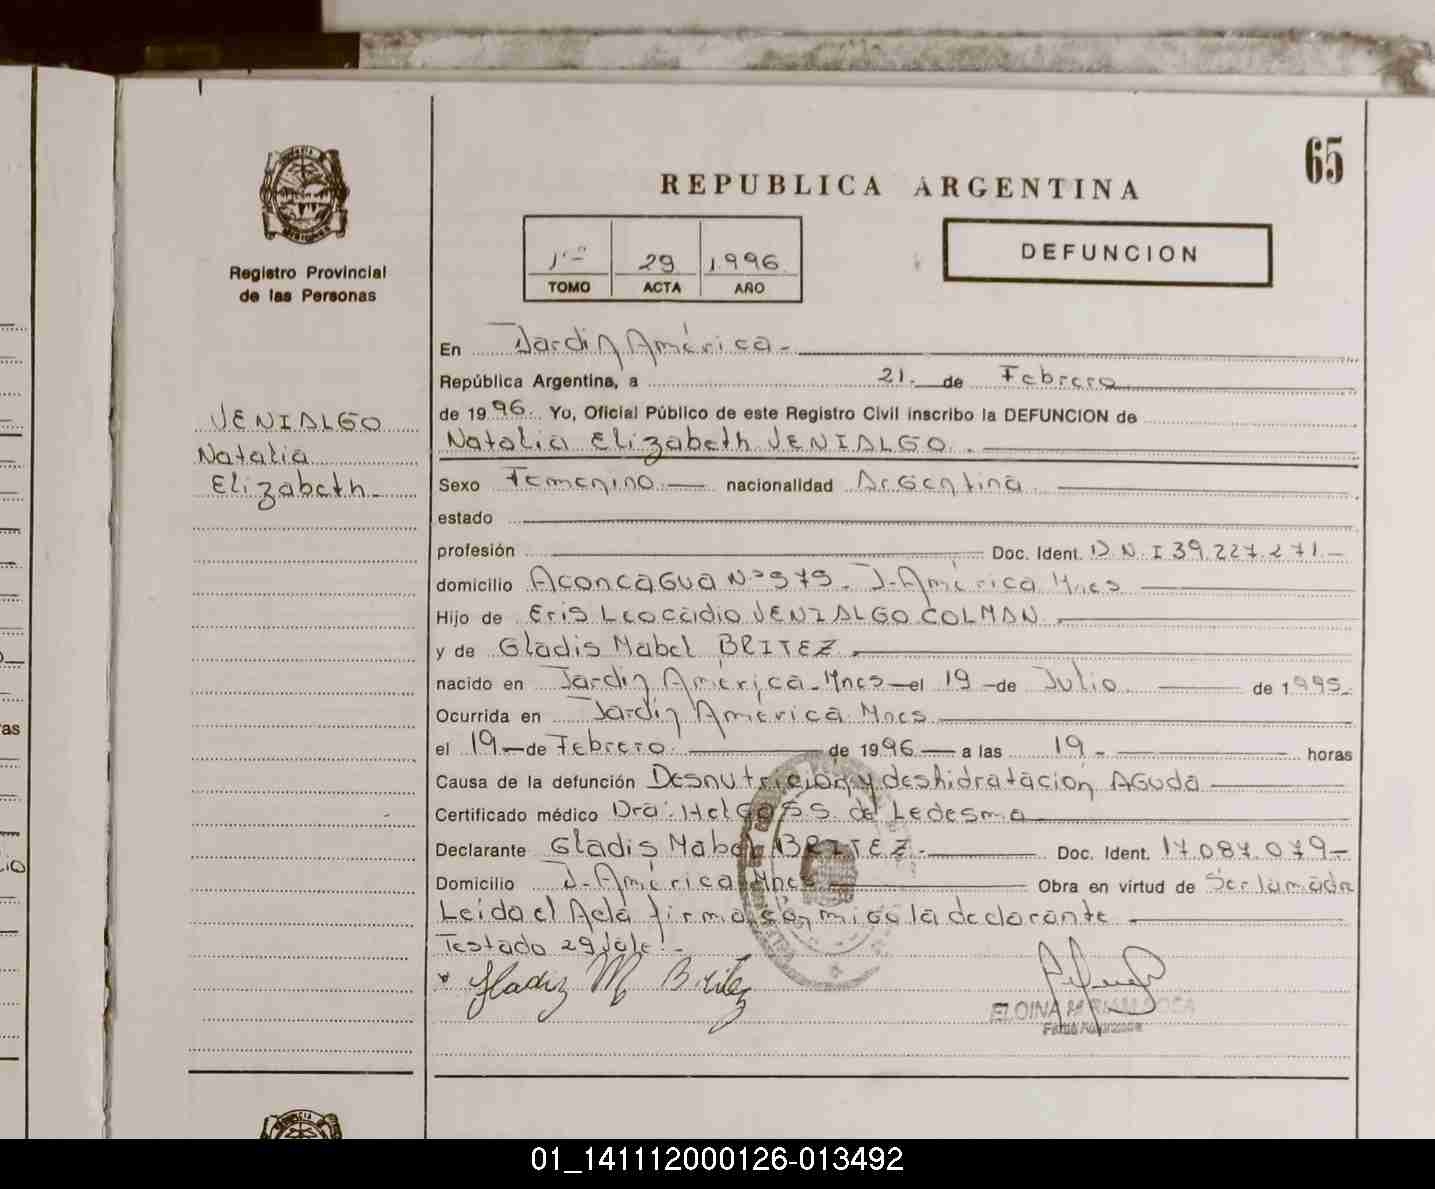 65
REPUBLICA ARGENTINA
Registro Provincial
de las Personas
1º 29 1.996
TOMO ACTA AÑO
DEFUNCION
VENIALGO
Natalia
Elizabeth
En Jardín América
República Argentina, a 21 de Febrero
de 1996. Yo, Oficial Público de este Registro Civil inscribo la DEFUNCION de
Natalia Elizabeth VENIALGO.
Sexo Femenino nacionalidad Argentina
estado
profesión Doc. Ident. D.N.I 39.227.271.-
domicilio Aconcagua Nº 575. J-América Mnes
Hijo de Eris Leocadio VENIALGO COLMAN.
y de Gladis Mabel BRITEZ.
nacido en Jardín América. Mnes el 19 de Julio de 1995.
Ocurrida en Jardín América. Mnes
el 19 de Febrero de 1996 a las 19 - horas
Causa de la defunción Desnutrición y deshidratación Aguda
Certificado médico Dra: S.S. de Ledesma
Declarante Gladis Mabel BRITEZ.- Doc. Ident. 17.087.079-
Domicilio J-América Mnes Obra en virtud de Ser la madre
Leída el Acta firma con migo la declarante
Testado 29 Vale!-
Gladiz M Britez
ELOINA
01_141112000126-013492